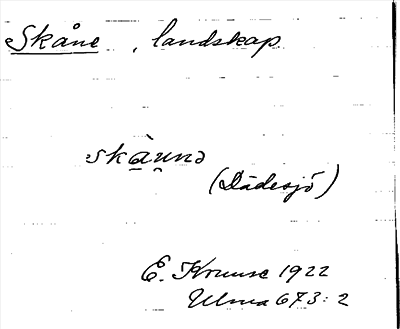 Skåne, landskap.
skà̠u̯nə
(Dädesjö)
E. Kruuse 1922
Ulma 673:2